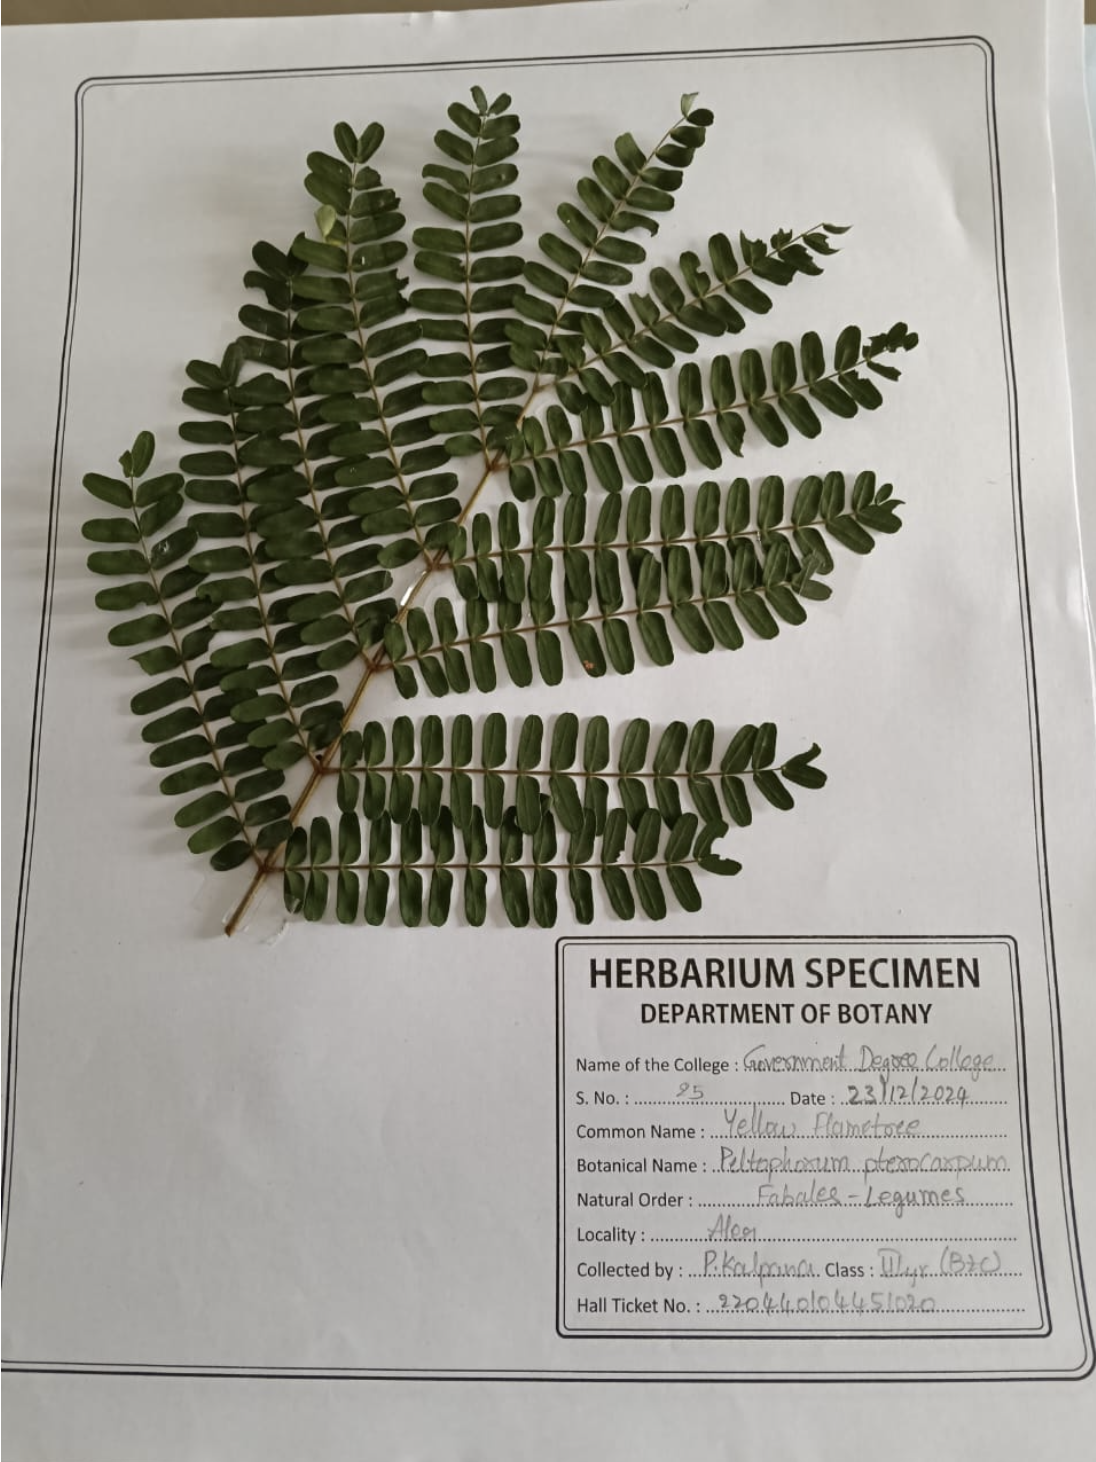 HERBARIUM SPECIMEN
DEPARTMENT OF BOTANY
Name of the College : Government Degree College
S. No. : 25 Date : 23/12/2024
Common Name : Yellow Flametree
Botanical Name : Peltophorum pterocarpum
Natural Order : Fabales - Legumes
Locality : Aler
Collected by : P. Kalpana Class : III yr (BZC)
Hall Ticket No. : 220440104451020